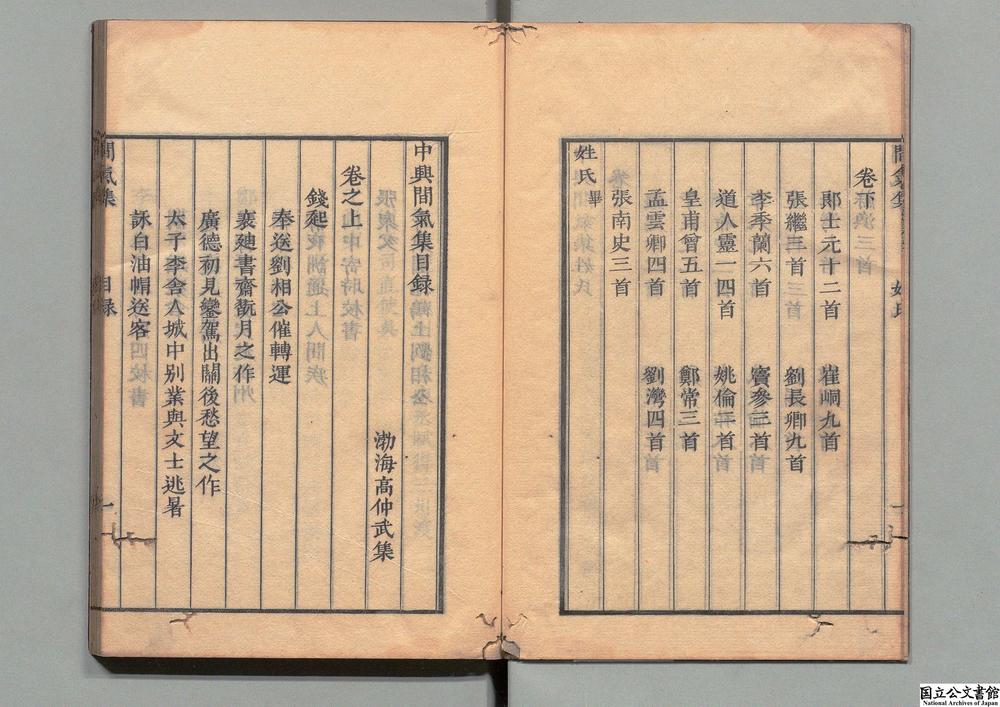 卷下
郎士元十二首　崔峒九首
張繼三首　劉長卿九首
李季蘭六首　竇參三首
道人靈一四首　姚倫二首
皇甫曾五首　鄭常三首
孟雲卿四首　劉灣四首
張南史三首
姓氏畢
中興間氣集目録
渤海高仲武集
卷之上
錢起
奉送劉相公催轉運
裴廸書齋翫月之作
廣德初見鑾駕出關後愁望之作
太子李舍人城中別業與文士逃暑
詠白油帽送客
間氣集　目録　一
国立公文書館
National Archives of Japan